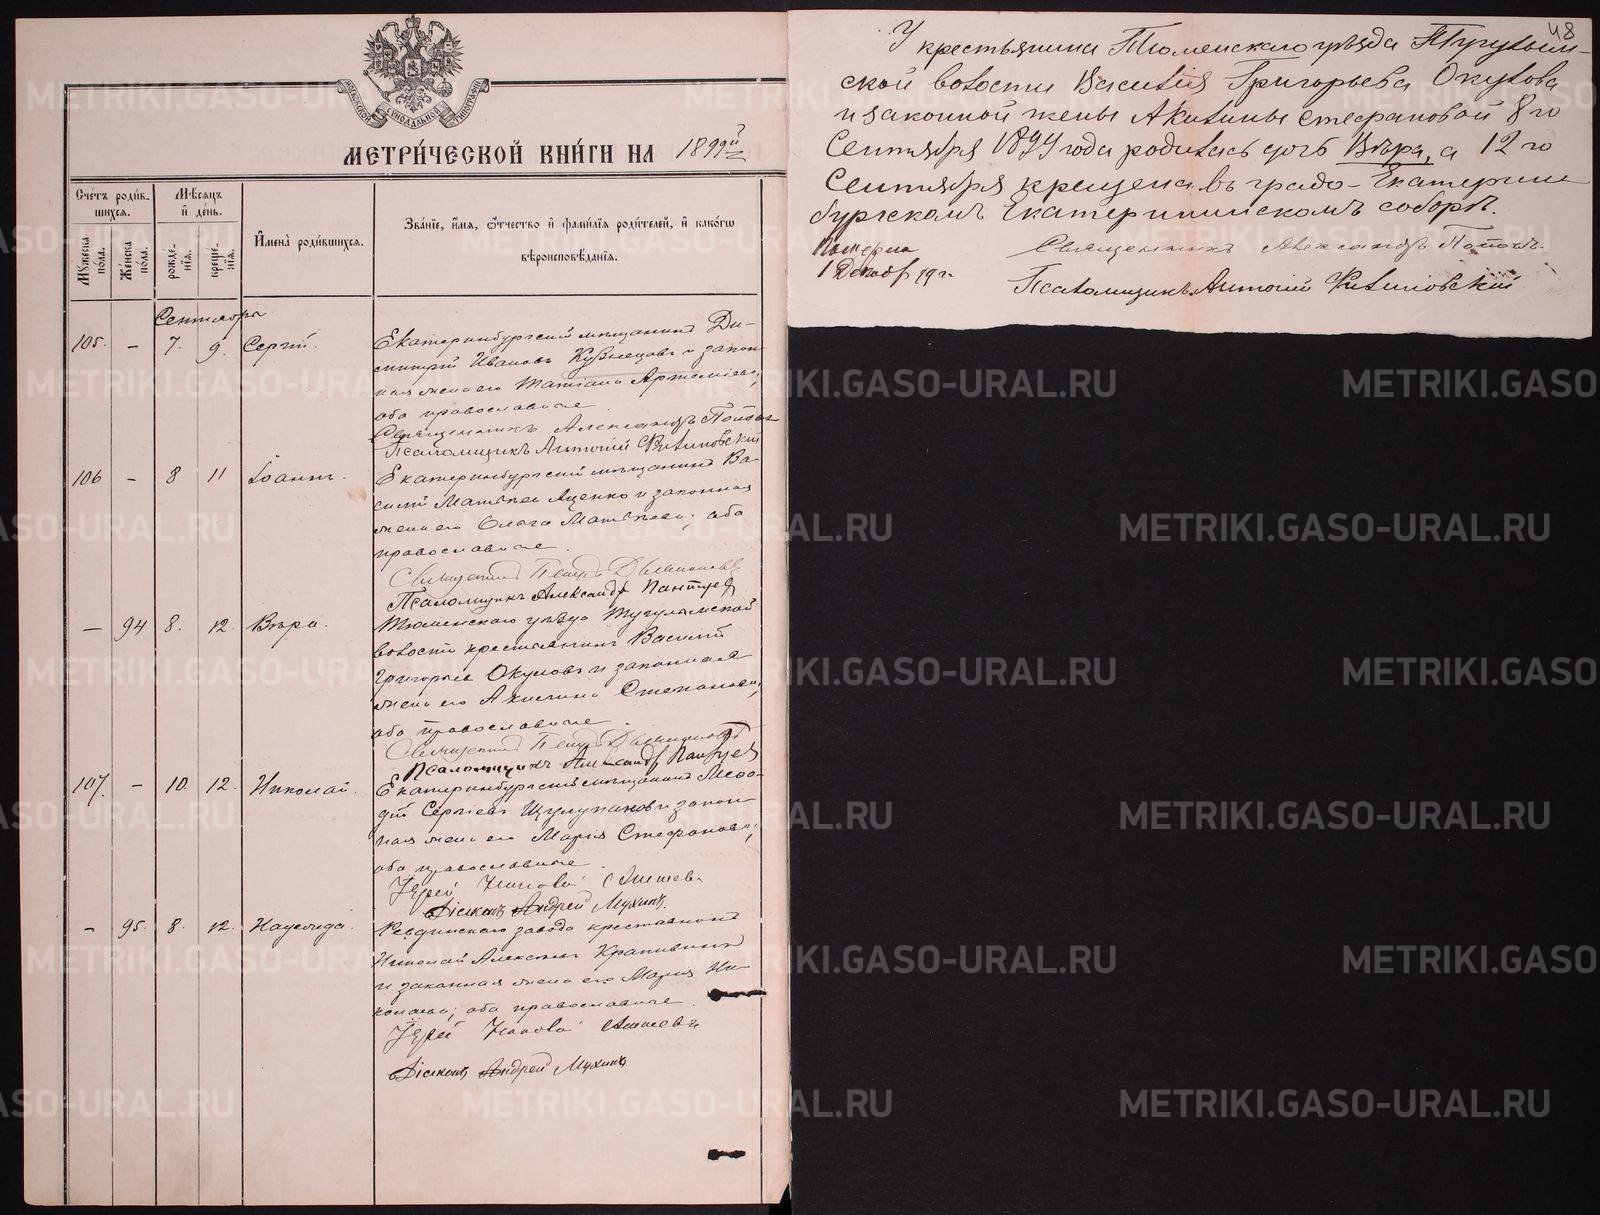 МЕТРИ́ЧЕСКОЙ КНИ́ГИ НА 1899й
Сче́тъ роди́вшихся.
Му́жеска по́ла.
Же́нска по́ла.
Мѣ́сяцъ и де́нь.
рожде́нїя.
креще́нїя.
Имена̀ роди́вшихся.
Зва́нїе, и́мя, о́тчество и фами́лїя роди́телей, и како́гѡ
вѣроисповѣ́данїя.
Сентябрь
105. – 7. 9. Сергiй.
Екатеринбургскiй мѣщанинъ Ди-
митрiй Ивановъ Кузнецовъ и закон-
ная жена его Татiана Артемiева,
оба православные.
Священникъ Александръ Поповъ
Псаломщикъ Антонiй
106 – 8 11 Iоаннъ.
Екатеринбургскiй мѣщанинъ Ва-
силiй Матвѣевъ Яценко и законная
жена его Ольга Матвѣева, оба
православные.
Священникъ Петръ
Псаломщикъ Александръ
– 94 8. 12. Вѣра.
Тюменскаго уѣзда Тугулымской
волости крестьянинъ Василiй
Григорьевъ Окуловъ и законная
жена его Акилина Стефанова,
оба православные.
Священникъ Петръ
Псаломщикъ Александръ
107. – 10. 12. Николай.
Екатеринбургскiй мѣщанинъ Меѳо-
дiй Сергѣевъ и закон-
ная жена его Марiя Стефанова,
оба православные.
Iерей
Дiаконъ Андрей Мухинъ.
– 95. 8. 12. Надежда.
Ревдинскаго завода крестьянинъ
Николай Алексѣевъ Крапивинъ
и законная жена его Марiя Ни-
колаева, оба православные.
Iерей
Дiаконъ Андрей Мухинъ
48
У крестьянина Тюменскаго уѣзда Тугулым-
ской волости Василiя Григорьева Окулова
и законной жены Акилины Стефановой 8-го
Сентября 1899 года родилась дочь Вѣра, а 12-го
Сентября крещена въ градо-Екатерин-
бургскомъ Екатерининскомъ соборѣ.
1 Декабр 19 г.
Священникъ Александръ Поповъ.
Псаломщикъ Антонiй
METRIKI.GASO-URAL.RU